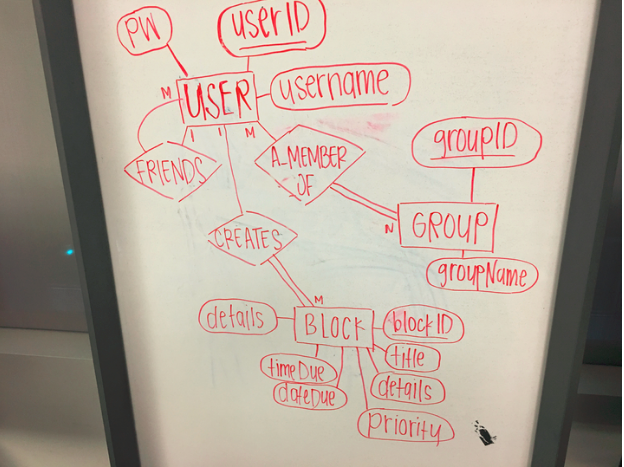 PW
userID
USER
username
M
1 1 M
FRIENDS
A_MEMBER
OF
groupID
N
GROUP
groupName
CREATES
M
details
BLOCK
blockID
title
timeDue
dateDue
details
priority